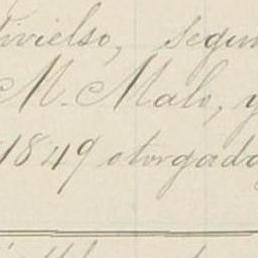 ivielso, segun
M. Malo, y
1849 otorgado